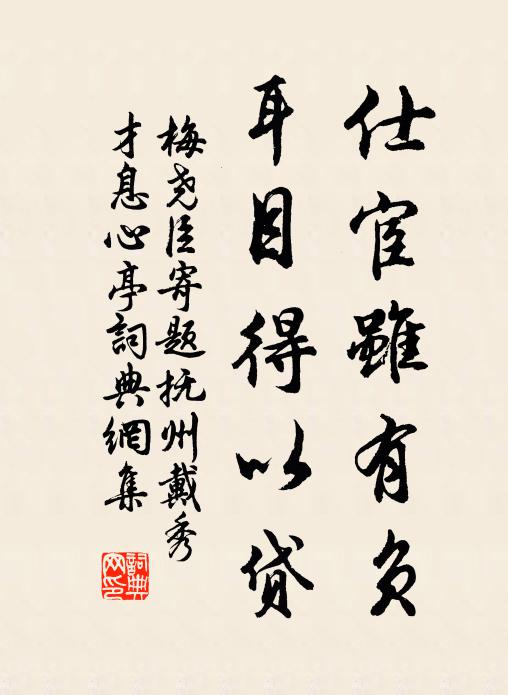 仕宦雖有负
耳目得以贷
梅尧臣寄题抚州戴秀
才息心亭詞典網集
詞典
网印